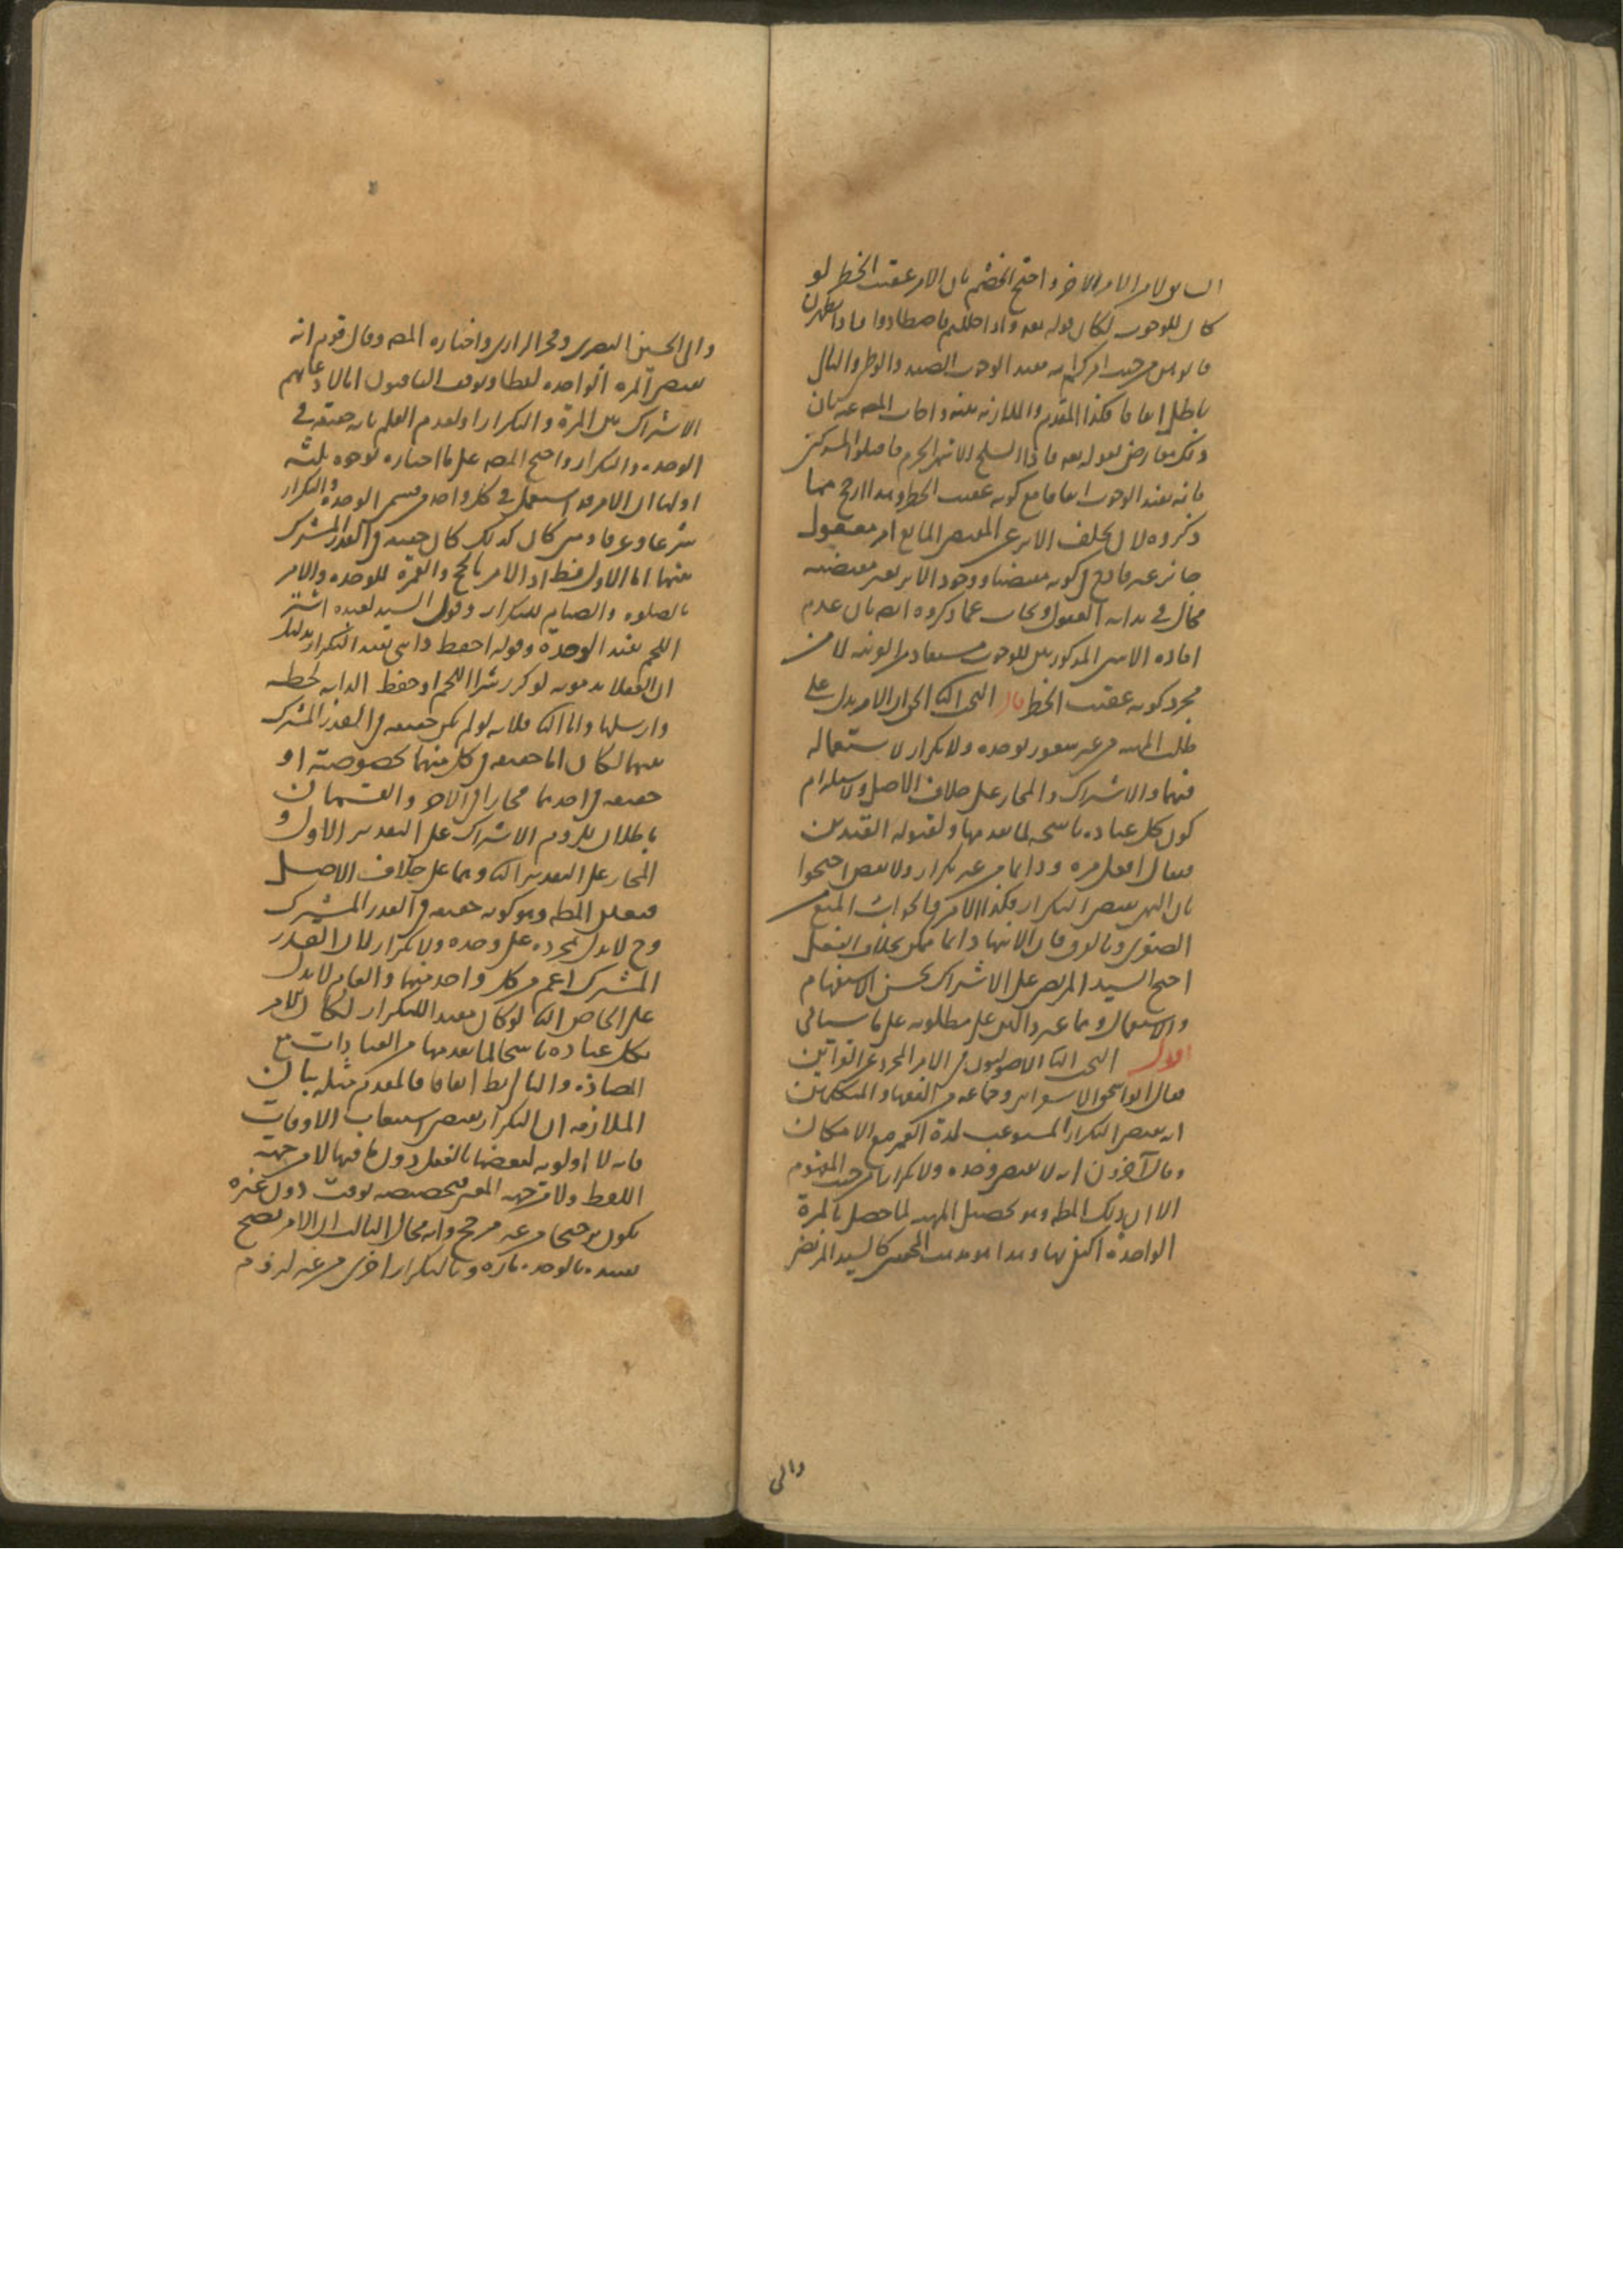 السابق لا من الامر الاخر واحتج الخصم بان الامر عقيب الخطر لو
كان للوجوب لكان قوله تعه واذا حللتم فاصطادوا فاذا تطهرن
فاتوهن من حيث امركم الله مفيد الوجوب الصيد والوطى والتالى
باطل اتفاقا فكذا المقدم والملازمة بينة واجاب المصه عنه بان
ذلك معارض بقوله تعه فاذا انسلخ الاشهر الحرم فاقتلوا المشركين
فانه يفيد الوجوب اتفاقا مع كونه عقيب الخطر وهذا ارجح مما
ذكروه لان تخلف الاثر عن المقتضى لمانع امر معقول
جائز غير قادح فى كونه مقتضيا ووجود الاثر بغير مقتضيه
محال فى بداية العقول ويجاب عما ذكروه ايضا بان عدم
افادة الامرين المذكورين للوجوب مستفاد من القرينة لا من
مجرد كونه عقيب الخطر قال البحث الثا الحق ان الامر يدل على
طلب المهية من غير شعور بوحدة ولا تكرار لاستعماله
فيهما والاشتراك والمجاز على خلاف الاصل ولاستلزام
كون كل عبادة ناسخة لما تقدمها ولقبوله القيدين
فيقال افعل مرة ودائما من غير تكرار ولا نقض احتجوا
بان النهى يقتضى التكرار فكذا الامر والجواب المنع من
الصغرى وبالفرق فان الانتهاء دائما ممكن بخلاف الفعل
احتج السيد المرتضى على الاشتراك بحسن الاستفهام
والاستعمال وهما غير دالين على مطلوبه على ما سياتى
اقول البحث الثا الاصوليون فى الامر المجرد عن القراين
فقال ابو اسحق الاسفراينى وجماعة من الفقهاء والمتكلمين
انه يقتضى التكرار المستوعب لمدة العمر مع الامكان
وقال آخرون انه لا يقتضى وحدة ولا تكرارا من حيث المفهوم
الا ان ذلك المط وهو تحصيل المهية لما حصل بالمرة
الواحدة اكتفى بها وهذا هو مذهب المحققين كالسيد المرتضى
والى
والى الحسين البصرى وفخر الرازى واختاره المصه وقال قوم انه
يقتضى المرة الواحدة لفظا وتوقف الباقون اما لادعائهم
الاشتراك بين المرة والتكرار او لعدم العلم بانه حقيقة فى
الوحدة والتكرار واحتج المصه على ما اختاره بوجوه ثلثة
اولها ان الامر قد استعمل فى كل واحد من قسمى الوحدة والتكرار
شرعا وعرفا ومتى كان كذلك كان حقيقة فى القدر المشترك
بينهما اما الاول فظ اذ الامر بالحج والعمرة للوحدة والامر
بالصلوة والصيام للتكرار وقول السيد لعبده اشتر
اللحم يفيد الوحدة وقوله احفظ دابتى يفيد التكرار بدليل
ان العقلا يذمونه لو كرر شرا اللحم او حفظ الدابة لحظة
وارسلها واما الثا فلانه لو لم يكن حقيقة فى القدر المشترك
بينهما لكان اما حقيقة فى كل منهما بخصوصه او
حقيقة فى احدهما مجازا فى الاخر والقسمان
باطلان للزوم الاشتراك على التقدير الاول و
المجاز على التقدير الثا وهما على خلاف الاصل
فتعين المط وهو كونه حقيقة فى القدر المشترك
وح لا يدل بمجرده على وحدة ولا تكرار لان القدر
المشترك اعم من كل واحد منهما والعام لا يدل
على الخاص الثا لو كان مفيدا للتكرار لكان الامر
بكل عبادة ناسخا لما تقدمها من العبادات مع
المضادة والتالى بط اتفاقا فالمقدم مثله بيان
الملازمة ان التكرار يقتضى استيعاب الاوقات
فانه لا اولوية لبعضها بالفعل دون باقيها لا من جهة
اللفظ ولا من جهة المعنى فتخصيصه بوقت دون غيره
يكون ترجيحا من غير مرجح وانه محال الثالث ان الامر يصح
تقييده بالوحدة تارة وبالتكرار اخرى من غير لزوم